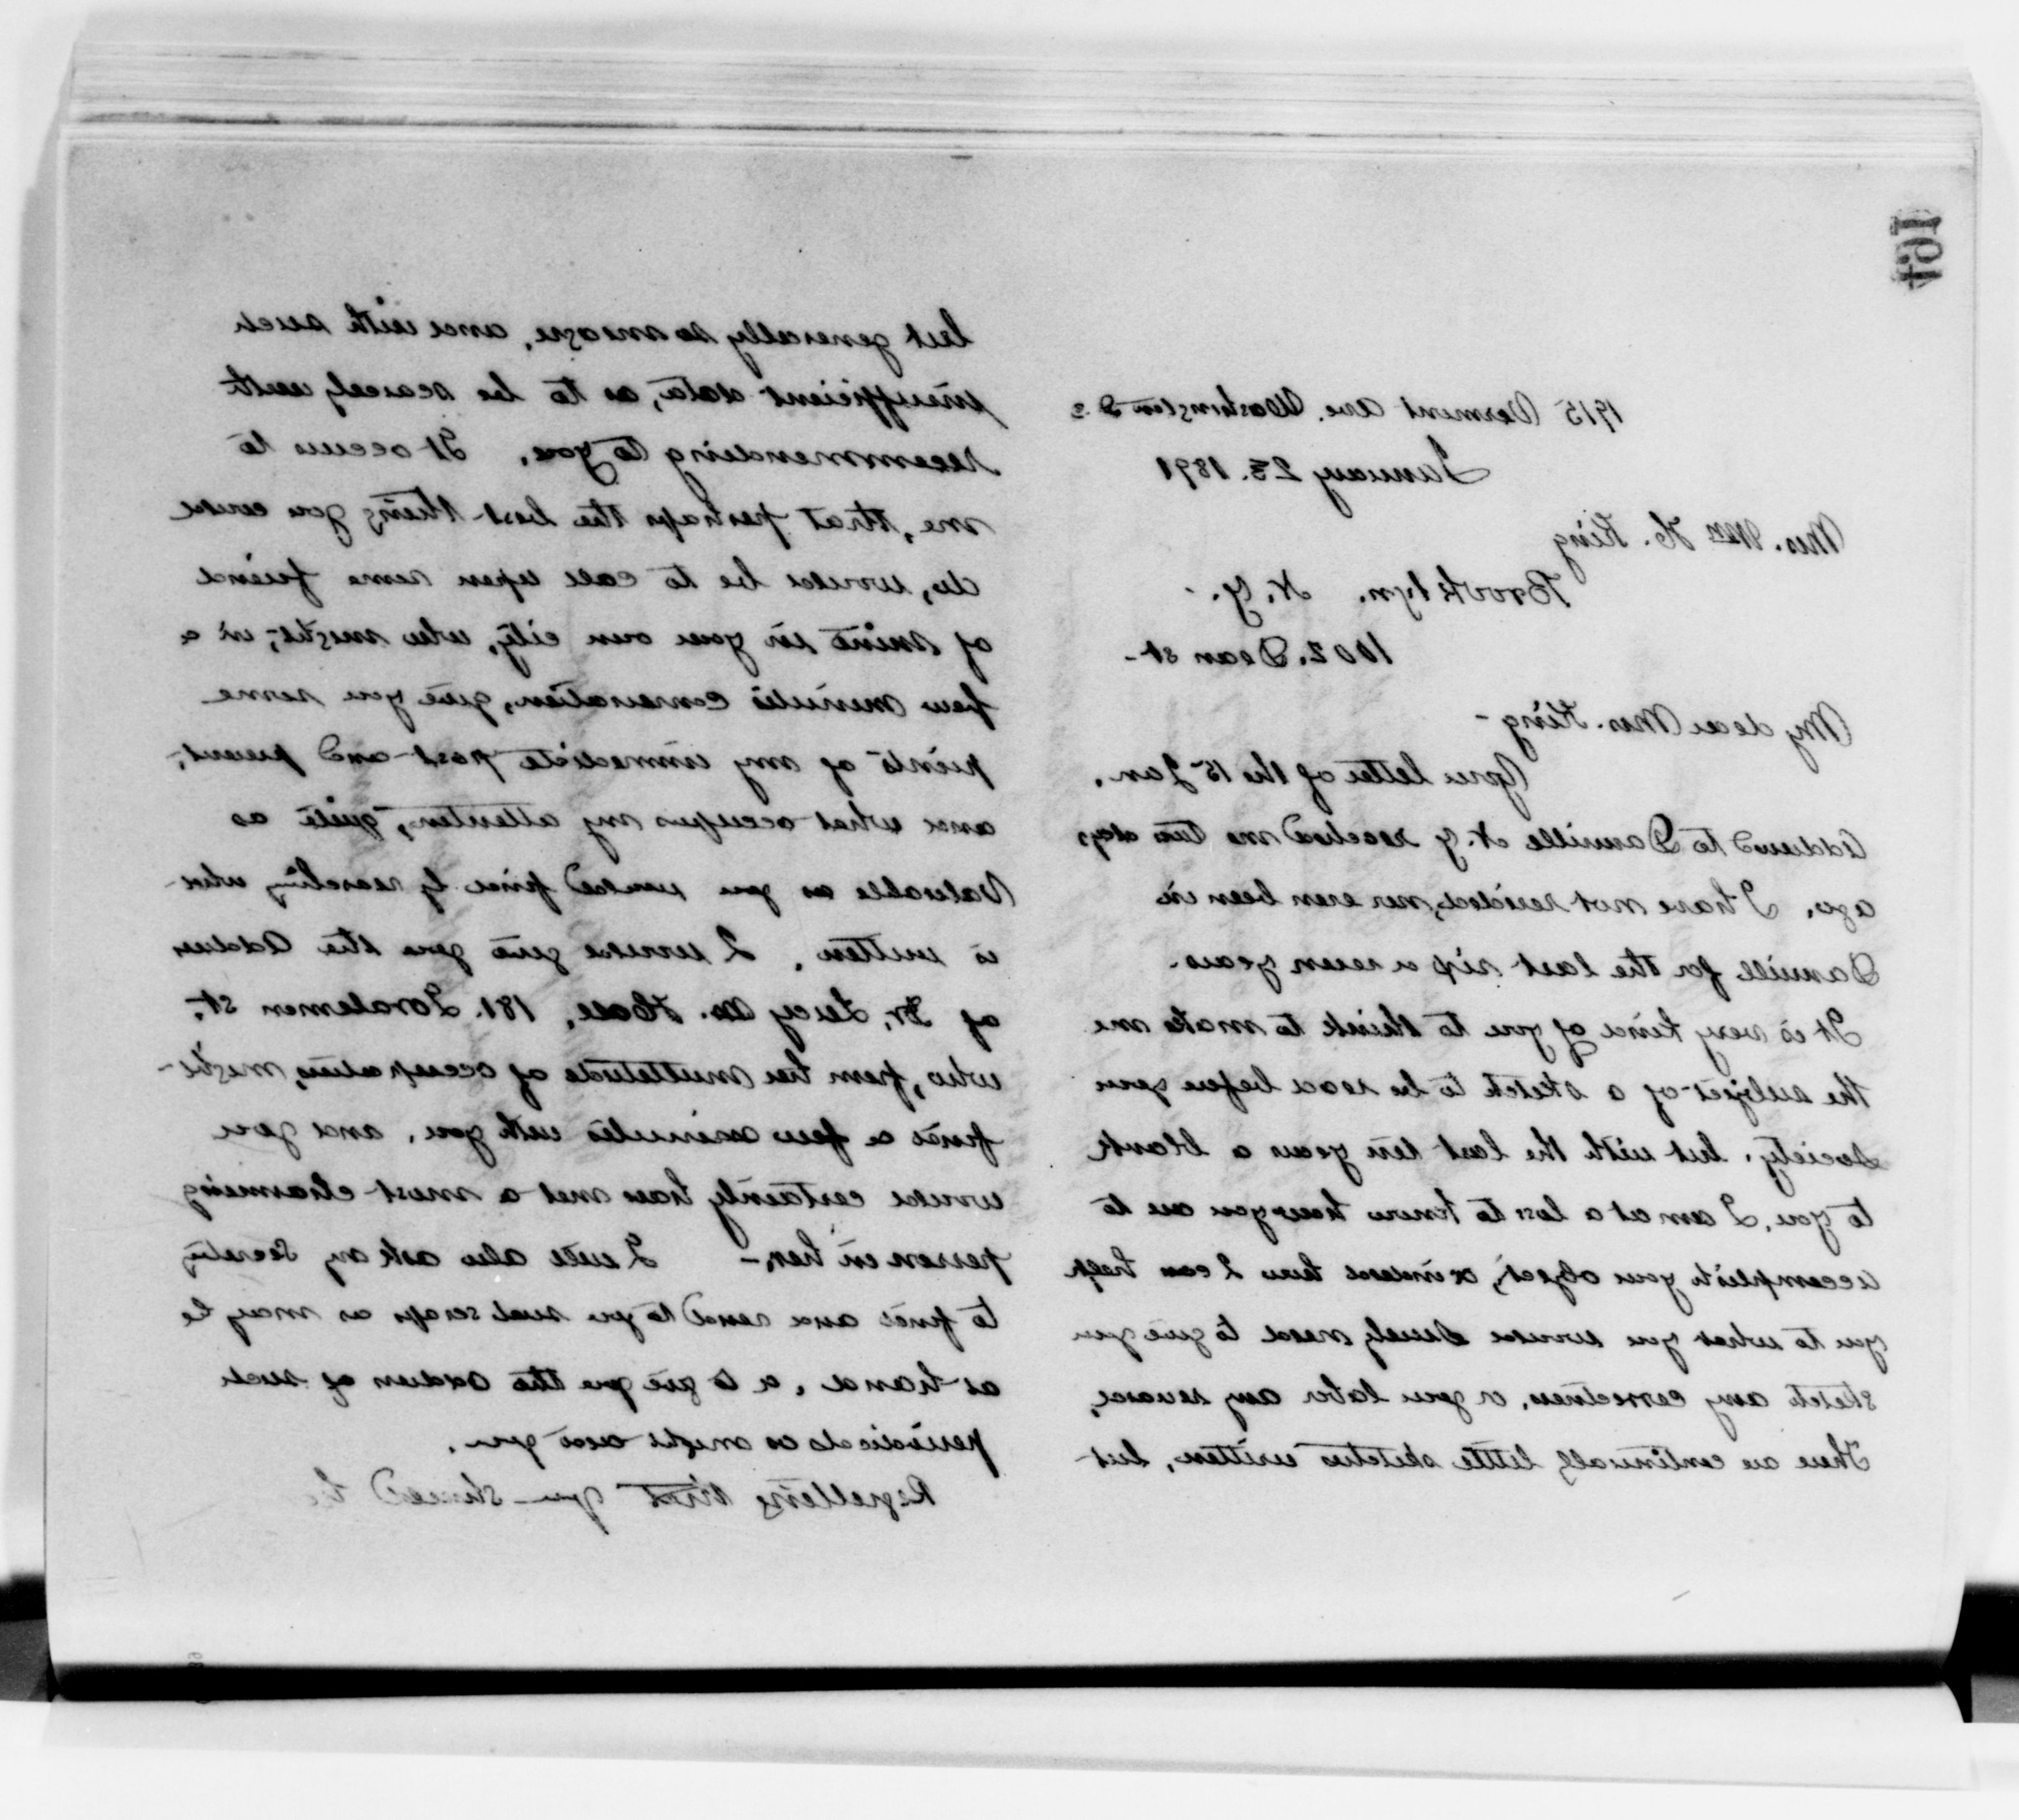 164
1915 Vermont Ave. Washington D.C.
January 23. 1891
Mrs. Wm H. King
Brooklyn. N.Y. -
1002. Dean st-
My dear Mrs. King -
Your letter of the 15 Jan.
address to Dansville N.Y. reached me two days
ago. I have not resided, nor even been in
Dansville for the last six or seven years.
It is very kind of you to think to make me
the subject of a sketch to be read before your
Society, but with the last ten years a blank
to you, I am at a loss to know how you are to
accomplish your object, or indeed how I can help
you to what you would surely need to give your
sketch any correctness, or your labor any reward,
There are continually little sketches written, but
but generally so meagre, and with such
insufficient data, as to be scarcely worth
recommending to you. It occurs to
me, that perhaps the best thing you could
do, would be to call upon some friend
of mine in your own city, who might, in a
few minutes conversation, give you some
points of my immediate past and present,
and what occupies my attention, quite as
valuable as you would find by reading what
is written. I would give you the address
of Dr. Lucy M. Hall, 181. Joralemon st.
who, from her multitude of occupations, might
find a few minutes with you, and you
would certainly have met a most charming
person in her. - I will also ask my Secretary
to find and send to you such scraps as may be
at hand, or to give you the address of such
periodicals as might aid you.
Regretting that you should be